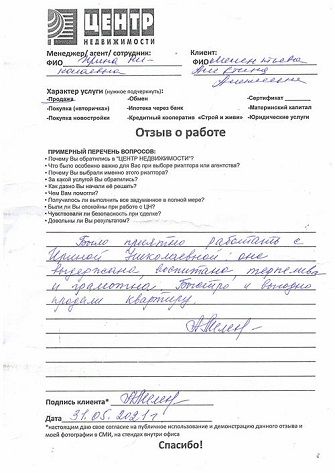 ЦЕНТР
НЕДВИЖИМОСТИ
Менеджер/ агент/ сотрудник: Клиент:
ФИО Ирина Ни- ФИО
колаевна
Алексеевна
Характер услуги (нужное подчеркнуть):
-Продажа -Обмен -Сертификат
-Покупка («вторичка») -Ипотека через банк -Материнский капитал
-Покупка новостройки -Кредитный кооператив «Строй и живи» -Юридические услуги
Отзыв о работе
ПРИМЕРНЫЙ ПЕРЕЧЕНЬ ВОПРОСОВ:
• Почему Вы обратились в "ЦЕНТР НЕДВИЖИМОСТИ"?
• Что было особенно важно для Вас при выборе риэлтора или агентства?
• Почему Вы выбрали именно этого риэлтора?
• За какой услугой Вы обратились?
• Как давно Вы начали её решать?
• Чем Вам помогли?
• Получилось ли выполнить все задуманное в полной мере?
• Были ли Вы спокойны при работе с ЦН?
• Чувствовали ли безопасность при сделке?
• Довольны ли Вы результатом?
Было приятно работать с
Ириной Николаевной: она
выдержана, воспитана, терпелива
и грамотна. Быстро и выгодно
продали квартиру.
Подпись клиента*
Дата 31.05.2021г
*настоящим даю свое согласие на публичное использование и демонстрацию данного отзыва и
моей фотографии в СМИ, на стендах внутри офиса
Спасибо!